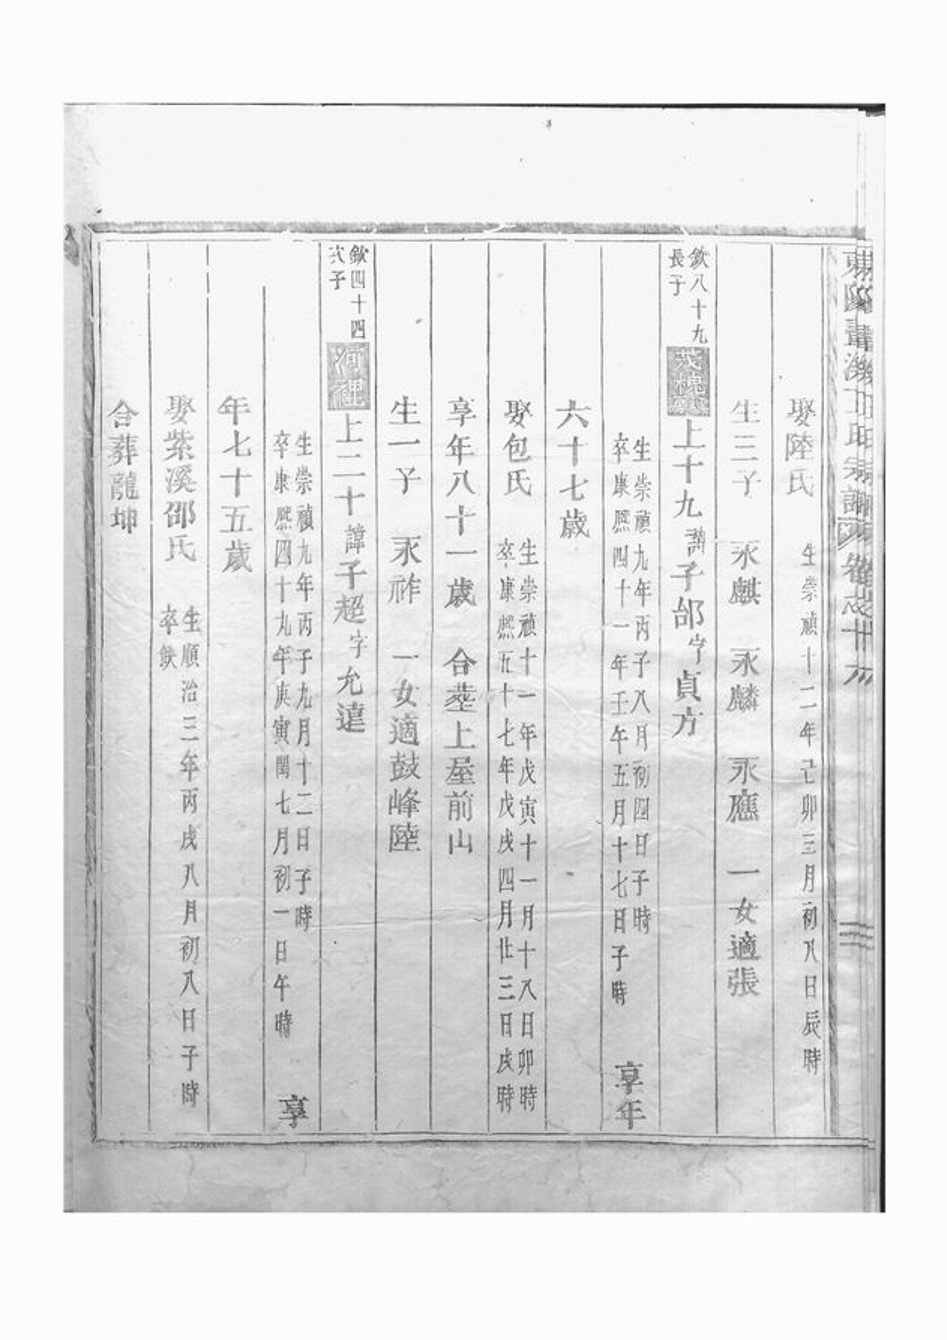 娶陸氏 生崇禎十二年己卯三月初八日辰時
生三子 永麒 永麟 永應 一女適張
欽八十九
長子
茂槐
上十九諱子邰字貞方
生崇禎九年丙子八月初四日子時
卒康熈四十一年壬午五月十七日子時
享年
六十七歲
娶包氏
生崇禎十一年戊寅十一月十八日卯時
卒康熈五十七年戊戌四月廿三日戌時
享年八十一歲 合塟上屋前山
生一子 永祚 一女適鼓峰陸
欽四十四
次子
河裡
上二十諱子超字允遠
生崇禎九年丙子九月十二日子時
卒康熈四十九年庚寅閏七月初一日午時
享
年七十五歲
娶紫溪邵氏
生順治三年丙戌八月初八日子時
卒缺
合葬龍坤